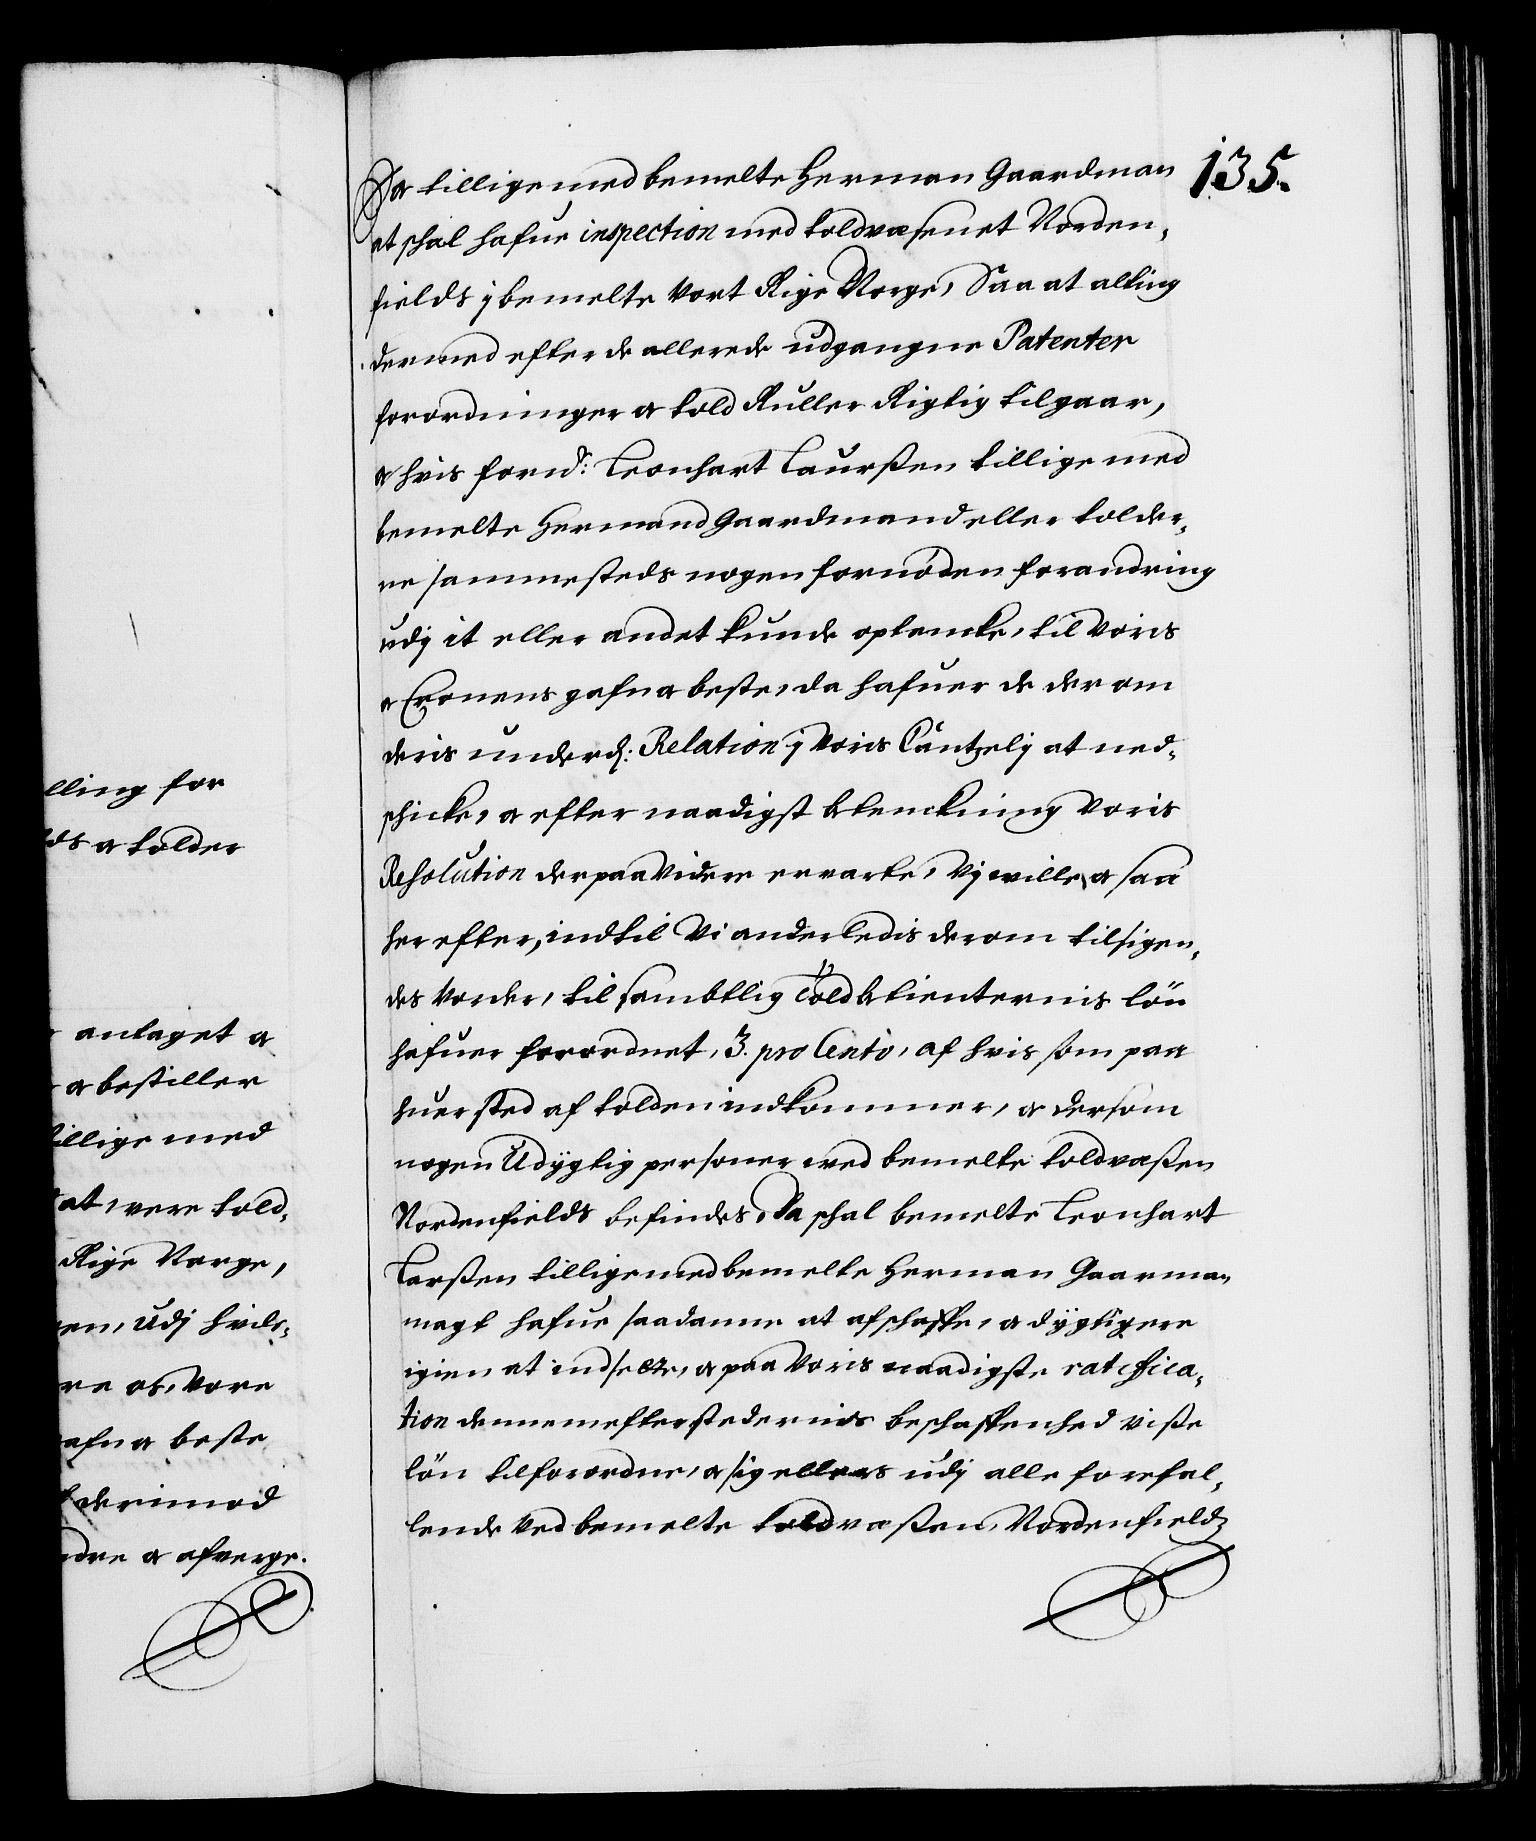 135.
Og tillige med bemelte Herman Gaardman
at schal hafue inspection med toldvæsenet Norden,
fields j bemelte vort Rige Norge, Saa at alting
dermed efter de allerede udgangne Patenter
forordninger og told Ruller Rigtig tilgaar,
og hvis forn.d: Leonhart Laurßen tillige med
bemelte Hermand Gaardmand eller tolder,
ne sammesteds nogen fornöden forandring
udj it eller andet kunde optencke, til voris
og Cronens gafn og beste, da hafuer de der om
deris underd: Relation j voris Cantzelj at ned,
schicke, og efter naadigst betenckning voris
Resolution der paa videre ervarte, Vj ville og saa
her efter, indtil Vi anderledis derom tilsigen,
des vorder, til sambtlig Toldbetienternis lön
hafuer forordnet, 3. pro Cento, af hvis som paa
huer sted af tolden indkommer, og dersom
nogen Udygtig personer ved bemelte toldvæßen
Nordenfields befindes, Da schal bemelte Leonhart
Larßen tillige med bemelte Herman Gaarman
magt hafue saadanne at afschaffe, og dygtigere
igien at indsette, og paa voris naadigste ratifica,
tion dennem efter stedernis beschaffenhed visse
lön tilforordne, og sig ellers udj alle forefal,
lende ved bemelte toldvæßen Nordenfields
lling for
ds og tolder
antaget og
og bestiller
tillige med
at, vere told,
Rige Norge,
en, udj hvilc,
re os, vore
afn og beste
derimod
dre og afverge.